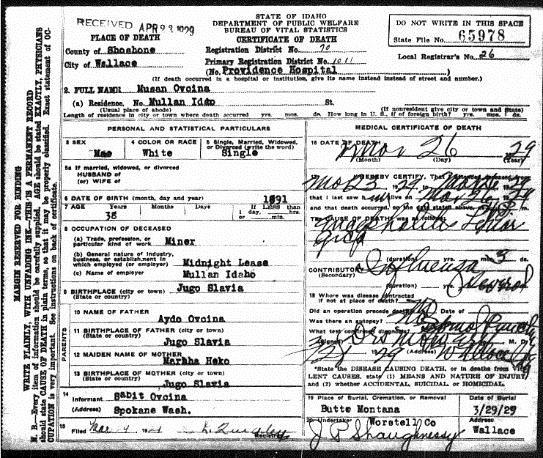 RECEIVED APR 23 1929
STATE OF IDAHO
DEPARTMENT OF PUBLIC WELFARE
BUREAU OF VITAL STATISTICS
CERTIFICATE OF DEATH
DO NOT WRITE IN THIS SPACE
State File No. 65978
PLACE OF DEATH
County of Shoshone
Registration District No. 70
Local Registrar's No. 26
City of Wallace
Primary Registration District No. 1011
(No. Providence Hospital
(If death occurred in a hospital or institution, give its name instead of street and number.)
2. FULL NAME: Musan Ovcina
(a) Residence, No. Mullan Idaho St.
(Usual place of abode)
(If nonresident give city or town and State)
Length of residence in city or town where death occurred yrs. mos. ds. How long in U. S., if of foreign birth? yrs. mos. ds.
PERSONAL AND STATISTICAL PARTICULARS
3 SEX
4 COLOR OR RACE White
5 Single, Married, Widowed, or Divorced (write the word) Single
5a If married, widowed, or divorced
HUSBAND of
(or) WIFE of
6 DATE OF BIRTH (month, day and year) 1891
7 AGE Years 38 Months Days If LESS than 1 day, hrs. or min.
8 OCCUPATION OF DECEASED
(a) Trade, profession, or particular kind of work Miner
(b) General nature of industry, business, or establishment in which employed (or employer) Midnight Lease
(c) Name of employer Mullan Idaho
9 BIRTHPLACE (city or town) Jugo Slavia
(State or country)
10 NAME OF FATHER Aydo Ovcina
11 BIRTHPLACE OF FATHER (city or town)
(State or country) Jugo Slavia
12 MAIDEN NAME OF MOTHER Marhha Heko
13 BIRTHPLACE OF MOTHER (city or town)
(State or country) Jugo Slavia
PARENTS
14 Informant Sabit Ovcina
(Address) Spokane Wash.
15 Filed
MEDICAL CERTIFICATE OF DEATH
16 DATE OF DEATH Mar 26 29
(Month) (Day) (Year)
I HEREBY CERTIFY, That I attended
that I last saw h alive on
and that death occurred, on the date stated above, at
THE CAUSE OF DEATH was as follows:
(duration) yrs. mos. 3 ds.
CONTRIBUTORY Influenza
(Secondary)
(duration)
18 Where was disease contracted
if not at place of death?
Did an operation precede death?
Was there an autopsy?
What test confirmed diagnosis?
M. D.
*State the DISEASE CAUSING DEATH, or in deaths from VIOLENT CAUSES, state (1) MEANS AND NATURE OF INJURY and (2) whether ACCIDENTAL, SUICIDAL or HOMICIDAL.
19 Place of Burial, Cremation, or Removal Butte Montana
Date of Burial 3/29/29
20 Undertaker Worstell Co
Wallace
J P Shaughnessy
MARGIN RESERVED FOR BINDING
WRITE PLAINLY, WITH UNFADING INK—THIS IS A PERMANENT RECORD
N. B.—Every item of information should be carefully supplied. AGE should be stated EXACTLY. PHYSICIANS should state CAUSE OF DEATH in plain terms, so that it may be properly classified. Exact statement of OCCUPATION is very important. See instructions on back of certificate.